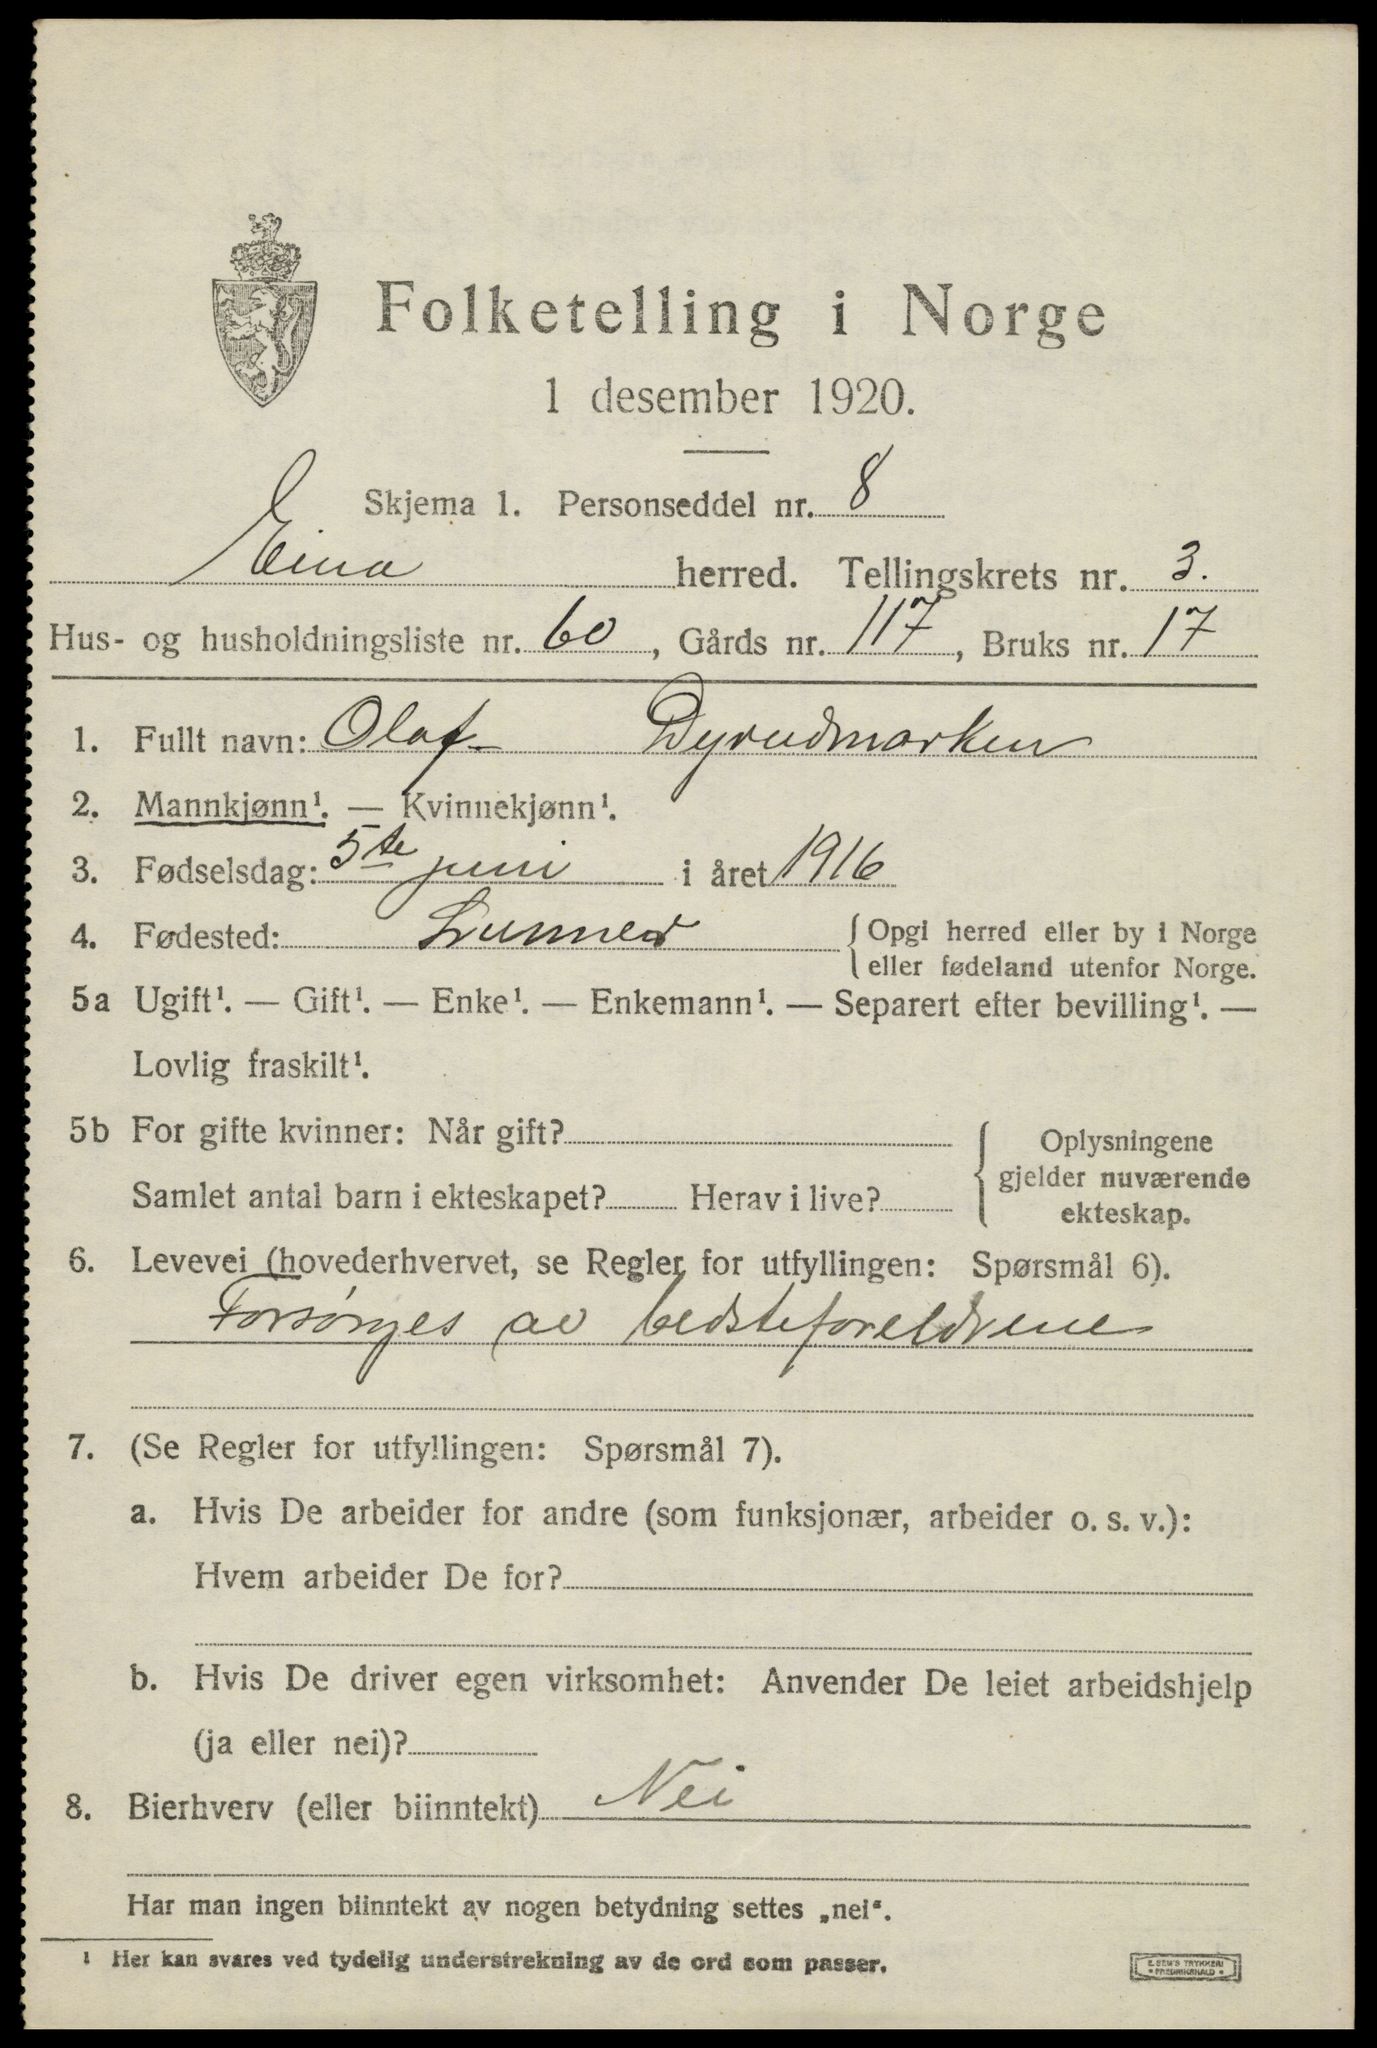 Folketelling i Norge
1 desember 1920.
Skjema 1. Personseddel nr. 8
Eina herred. Tellingskrets nr. 3.
Hus- og husholdningsliste nr. 60, Gårds nr. 117, Bruks nr. 17
1. Fullt navn: Olaf Dyrudmarken
2. Mannkjønn¹. — Kvinnekjønn¹.
3. Fødselsdag: 5te juni i året 1916
4. Fødested: Lunner { Opgi herred eller by i Norge
eller fødeland utenfor Norge.
5a Ugift¹. — Gift¹. — Enke¹. — Enkemann¹. — Separert efter bevilling¹. —
Lovlig fraskilt¹.
5b For gifte kvinner: Når gift?
Samlet antal barn i ekteskapet? Herav i live?
{ Oplysningene
gjelder nuværende
ekteskap.
6. Levevei (hovederhvervet, se Regler for utfyllingen: Spørsmål 6).
Forsørges av bedsteforeldrene
7. (Se Regler for utfyllingen: Spørsmål 7).
a. Hvis De arbeider for andre (som funksjonær, arbeider o. s. v.):
Hvem arbeider De for?
b. Hvis De driver egen virksomhet: Anvender De leiet arbeidshjelp
(ja eller nei)?
8. Bierhverv (eller biinntekt) Nei
Har man ingen biinntekt av nogen betydning settes „nei“.
¹ Her kan svares ved tydelig understrekning av de ord som passer.
E. SEM'S TRYKKERI
• FREDRIKSHALD •